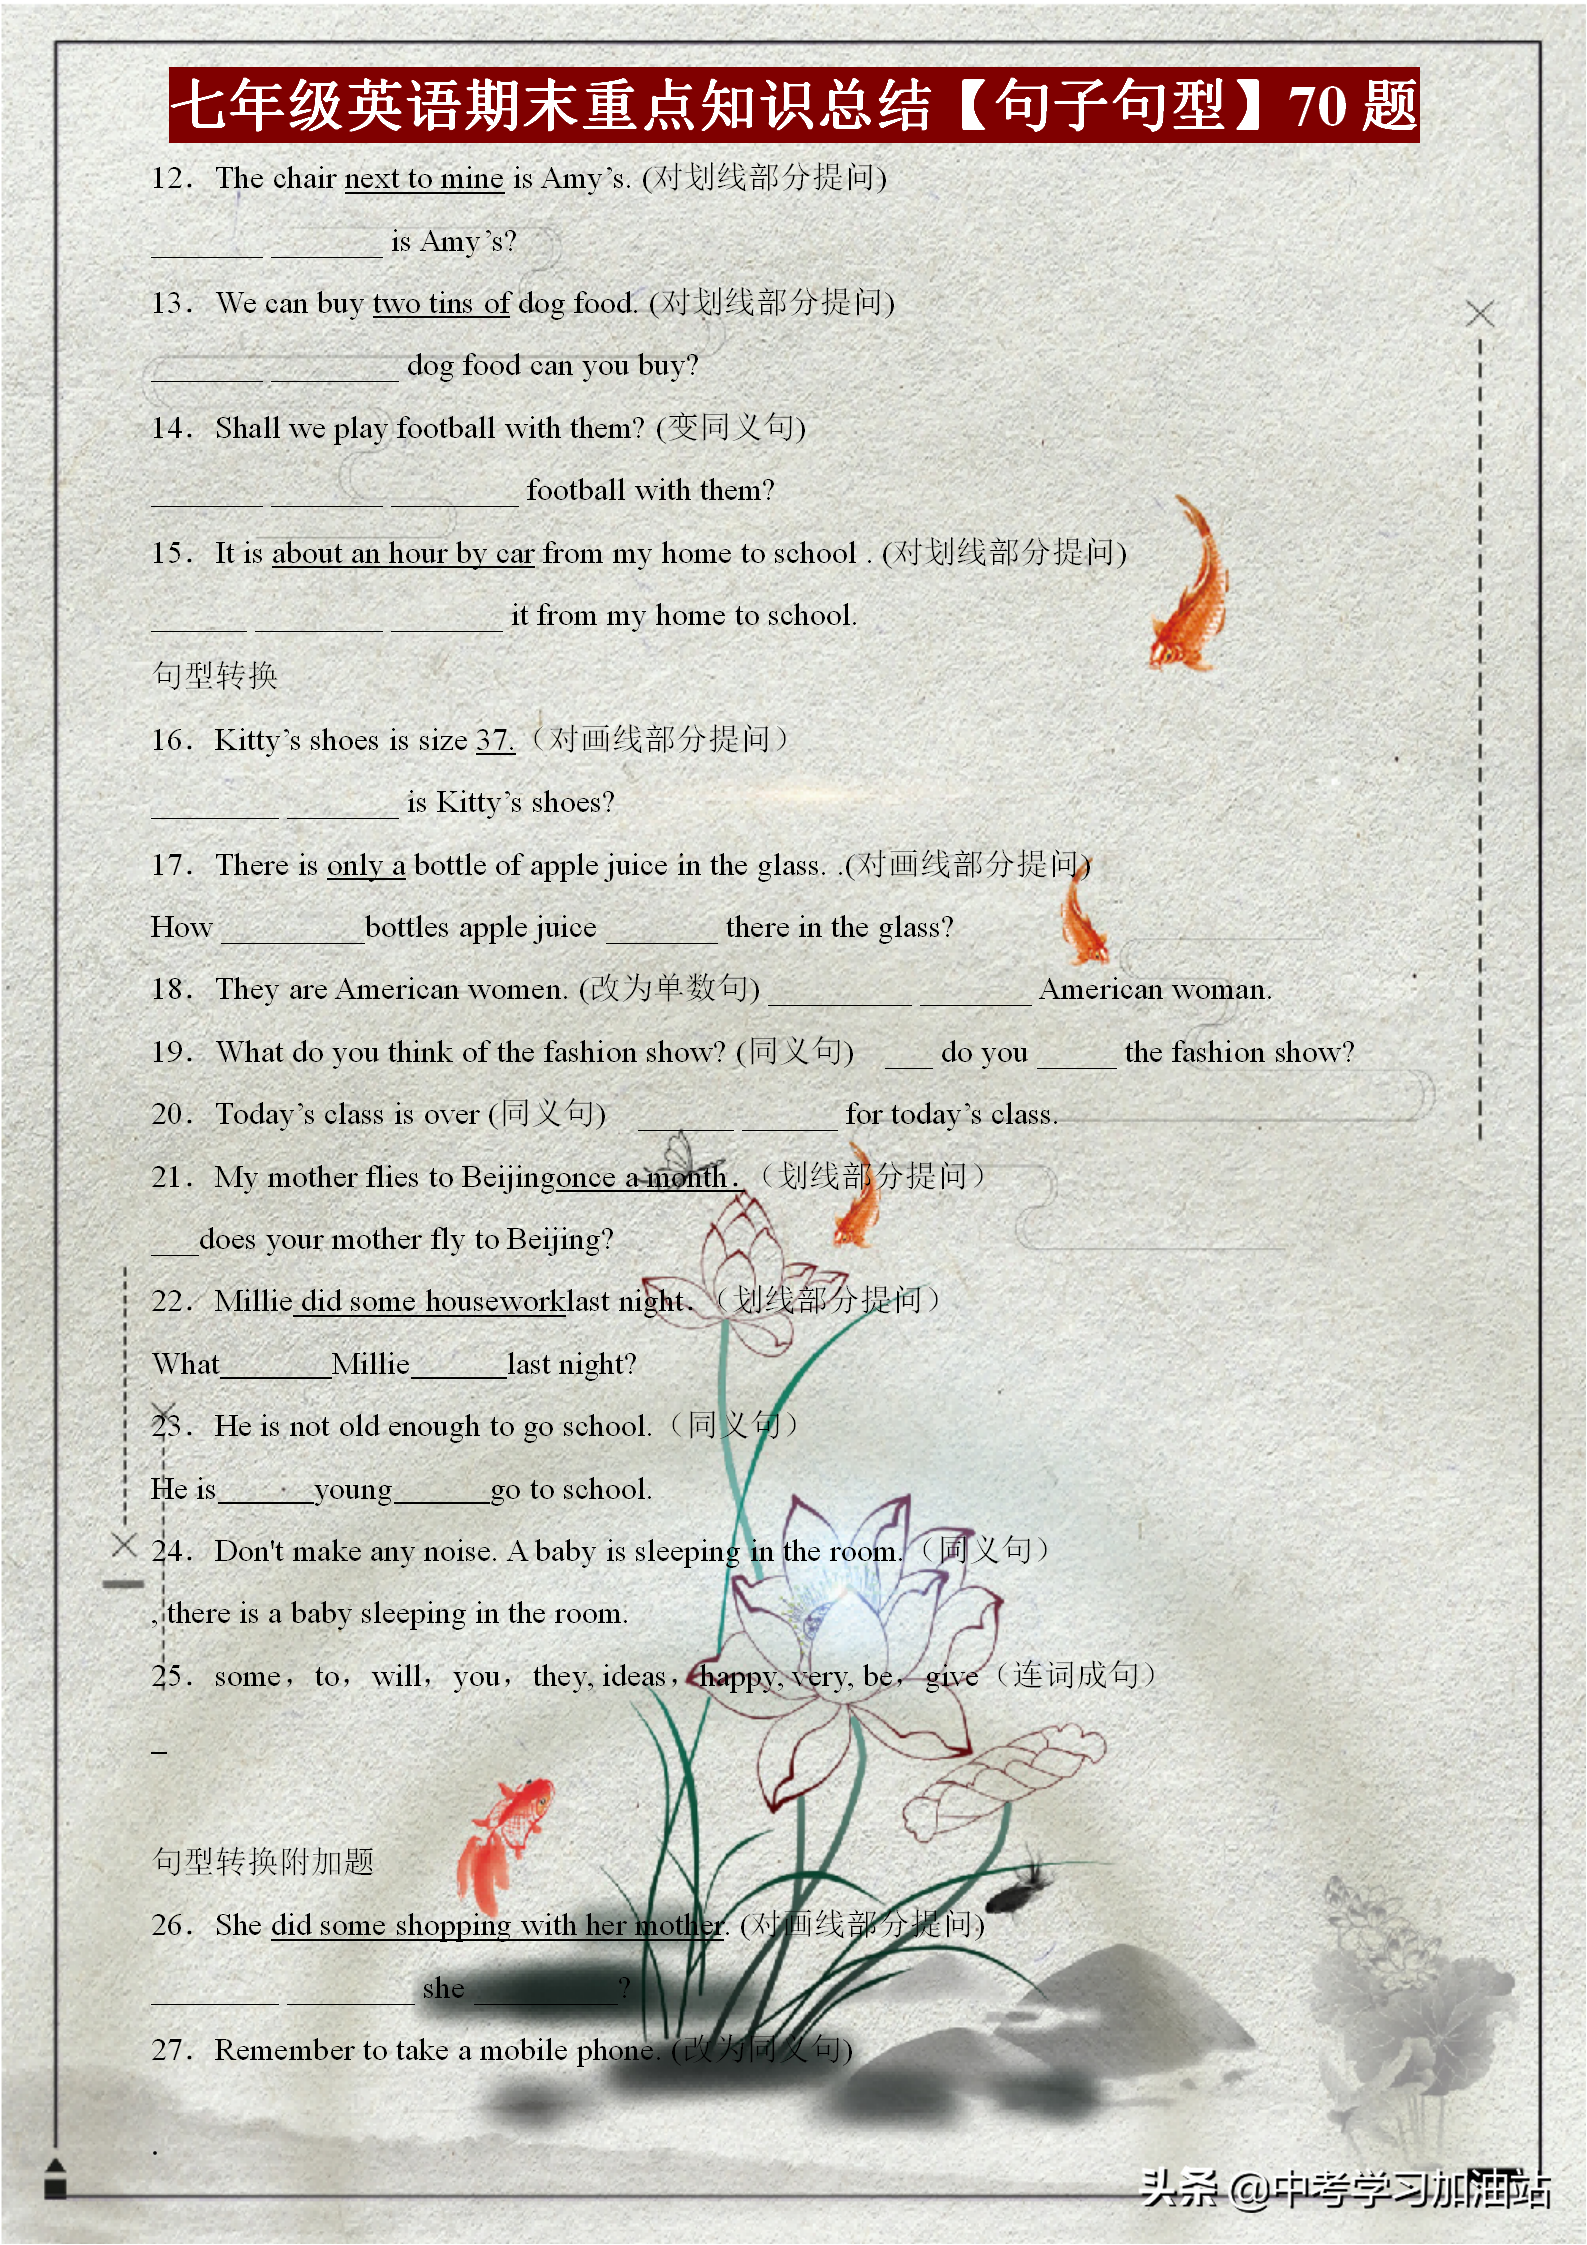 七年级英语期末重点知识总结【句子句型】70 题
12．The chair next to mine is Amy’s. (对划线部分提问)
_______ _______ is Amy’s?
13．We can buy two tins of dog food. (对划线部分提问)
_______ ________ dog food can you buy?
14．Shall we play football with them? (变同义句)
_______ _______ ________ football with them?
15．It is about an hour by car from my home to school . (对划线部分提问)
______ ________ _______ it from my home to school.
句型转换
16．Kitty’s shoes is size 37.（对画线部分提问）
________ _______ is Kitty’s shoes?
17．There is only a bottle of apple juice in the glass. .(对画线部分提问)
How _________bottles apple juice _______ there in the glass?
18．They are American women. (改为单数句) _________ _______ American woman.
19．What do you think of the fashion show? (同义句) ___ do you _____ the fashion show?
20．Today’s class is over (同义句) ______ ______ for today’s class.
21．My mother flies to Beijingonce a month．（划线部分提问）
___does your mother fly to Beijing?
22．Millie did some houseworklast night．（划线部分提问）
What_______Millie______last night?
23．He is not old enough to go school.（同义句）
He is______young______go to school.
24．Don't make any noise. A baby is sleeping in the room.（同义句）
, there is a baby sleeping in the room.
25．some，to，will，you，they, ideas，happy, very, be，give（连词成句）
_
句型转换附加题
26．She did some shopping with her mother. (对画线部分提问)
________ ________ she _________?
27．Remember to take a mobile phone. (改为同义句)
.
头条 @中考学习加油站